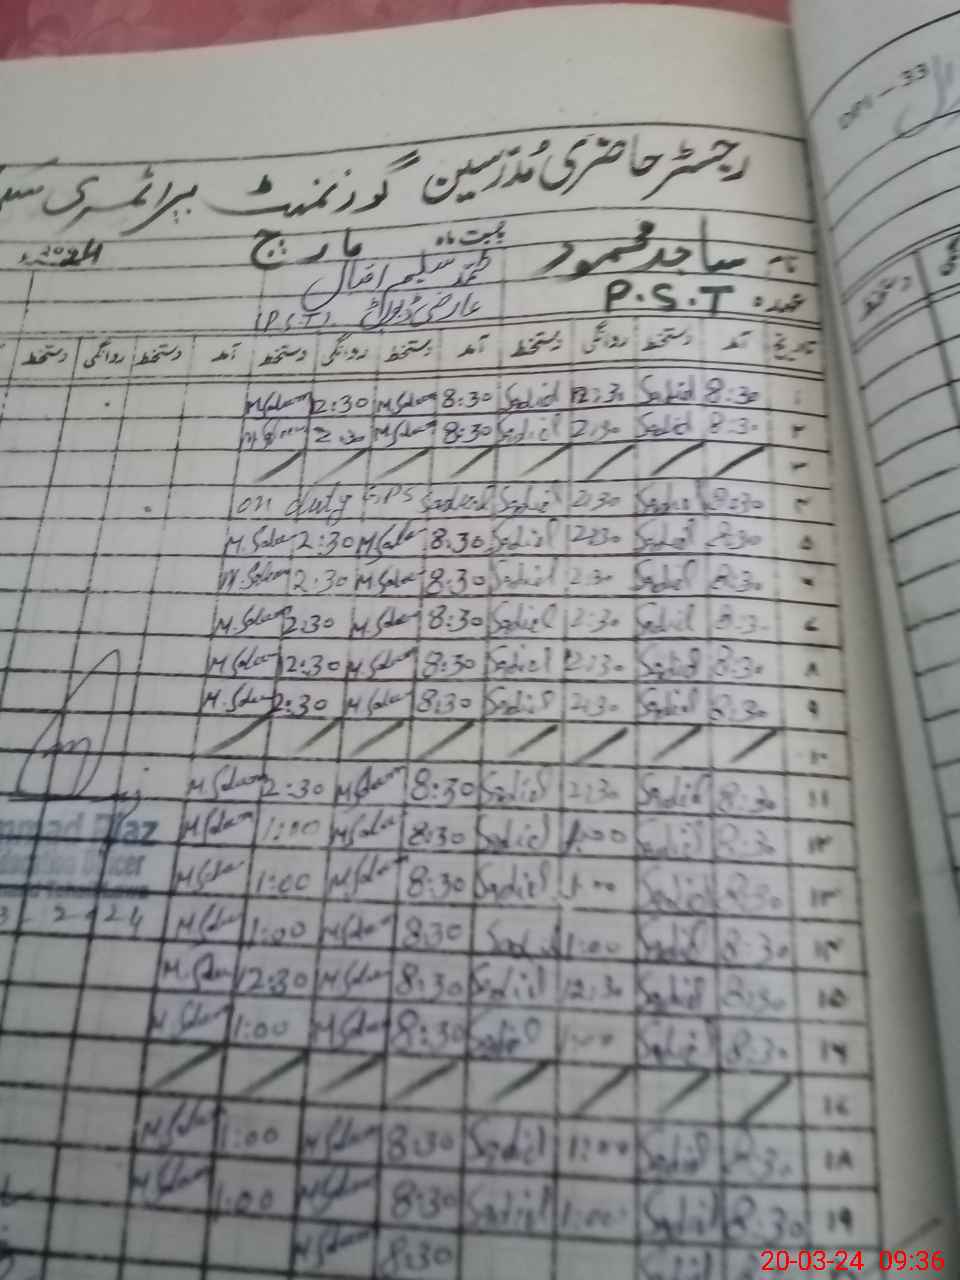 رجسٹر حاضری مُدرسین گورنمنٹ پرائمری سکول
نام ساجد محمود بابت ماہ مارچ 2024
محمد سلیم اقبال
عہدہ P.S.T عارضی ڈیوٹی (P.S.T)
تاریخ آمد دستخط روانگی دستخط آمد دستخط روانگی دستخط آمد دستخط روانگی دستخط
۱ 8:30 Sadid 12:30 Sadid 8:30 M Salam 2:30 M Salam
۲ 8:30 Sadid 2:30 Sadid 8:30 M Salam 2:30
۳
۴ 8:30 Sadid 2:30 Sadid on duty GPS
۵ 8:30 Sadid 2:30 Sadid 8:30 M Salam 2:30 M. Salam
۶ 8:30 Sadid 2:30 Sadid 8:30 M Salam 2:30 M. Salam
۷ 8:30 Sadid 2:30 Sadid 8:30 M Salam 2:30 M. Salam
۸ 8:30 Sadid 2:30 Sadid 8:30 M Salam 2:30 M Salam
۹ 8:30 Sadid 2:30 Sadid 8:30 M Salam 2:30 M. Salam
۱۰
۱۱ 8:30 Sadid 2:30 Sadid 8:30 M Salam 2:30 M. Salam
۱۲ 8:30 Sadid 1:00 Sadid 8:30 M Salam 1:00 M Salam
۱۳ 8:30 Sadid 1:00 Sadid 8:30 M Salam 1:00 M Salam
۱۴ 8:30 Sadid 1:00 Sadid 8:30 M Salam 1:00 M Salam
۱۵ 8:30 Sadid 12:30 Sadid 8:30 M Salam 12:30 M. Salam
۱۶ 8:30 Sadid 1:00 Sadid 8:30 M Salam 1:00 M Salam
۱۷
۱۸ 8:30 Sadid 1:00 Sadid 8:30 M Salam 1:00 M Salam
۱۹ 8:30 Sadid 1:00 Sadid 8:30 M Salam 1:00 M Salam
8:30 M Salam
Officer
2 - 24
دستخط
20-03-24 09:36